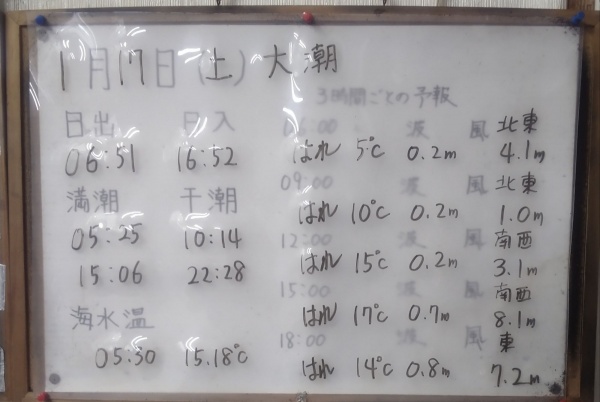 1月17日(土)大潮
3時間ごとの予報
日出 日入
06:51 16:52
満潮 干潮
05:25 10:14
15:06 22:28
海水温
05:30 15.18℃
06:00 波 風 北東
はれ 5℃ 0.2m 4.1m
09:00 波 風 北東
はれ 10℃ 0.2m 1.0m
12:00 波 風 南西
はれ 15℃ 0.2m 3.1m
15:00 波 風 南西
はれ 17℃ 0.7m 8.1m
18:00 波 風 東
はれ 14℃ 0.8m 7.2m